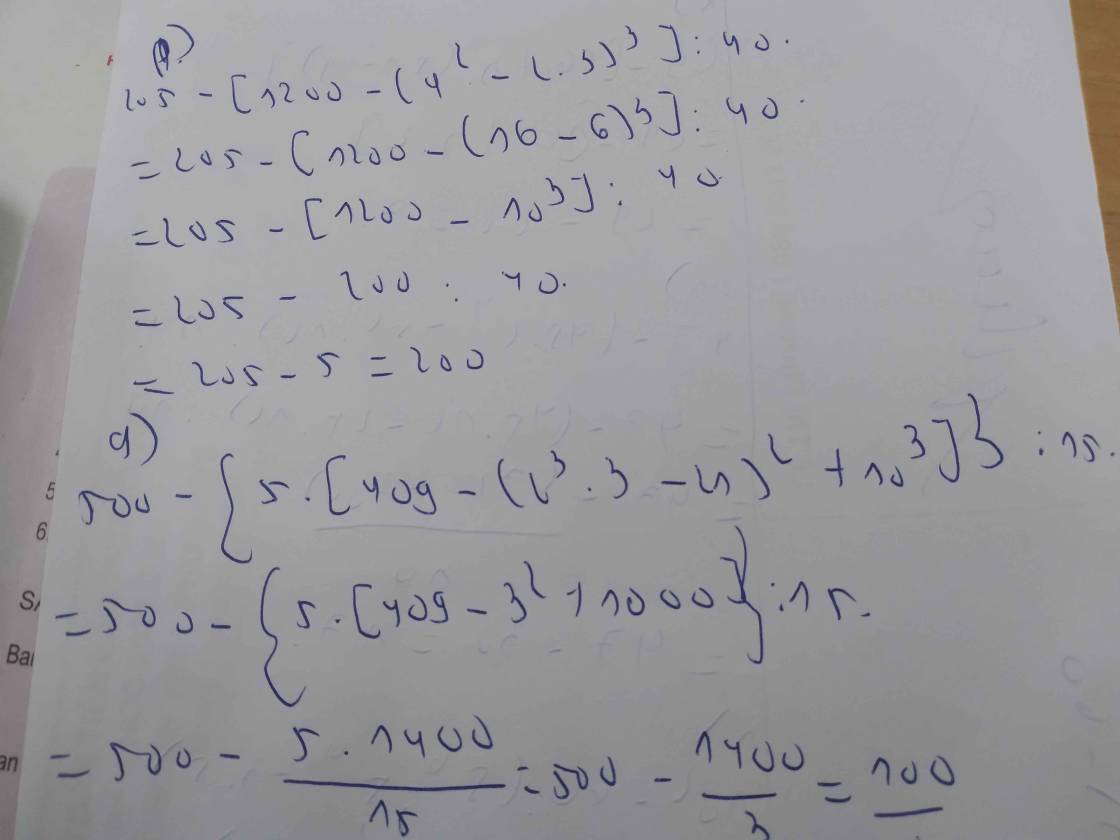 p)
205 - [1200 - (4² - 2.3)³] : 40.
= 205 - [1200 - (16 - 6)³] : 40.
= 205 - [1200 - 10³] : 40.
= 205 - 200 : 40.
= 205 - 5 = 200
q)
500 - {5.[409 - (2³.3 - 21)² + 10³]} : 15.
= 500 - {5.[409 - 3² + 1000]} : 15.
= 500 - 5.1400/15 = 500 - 1400/3 = 100/
5
6
SA
Bai
an